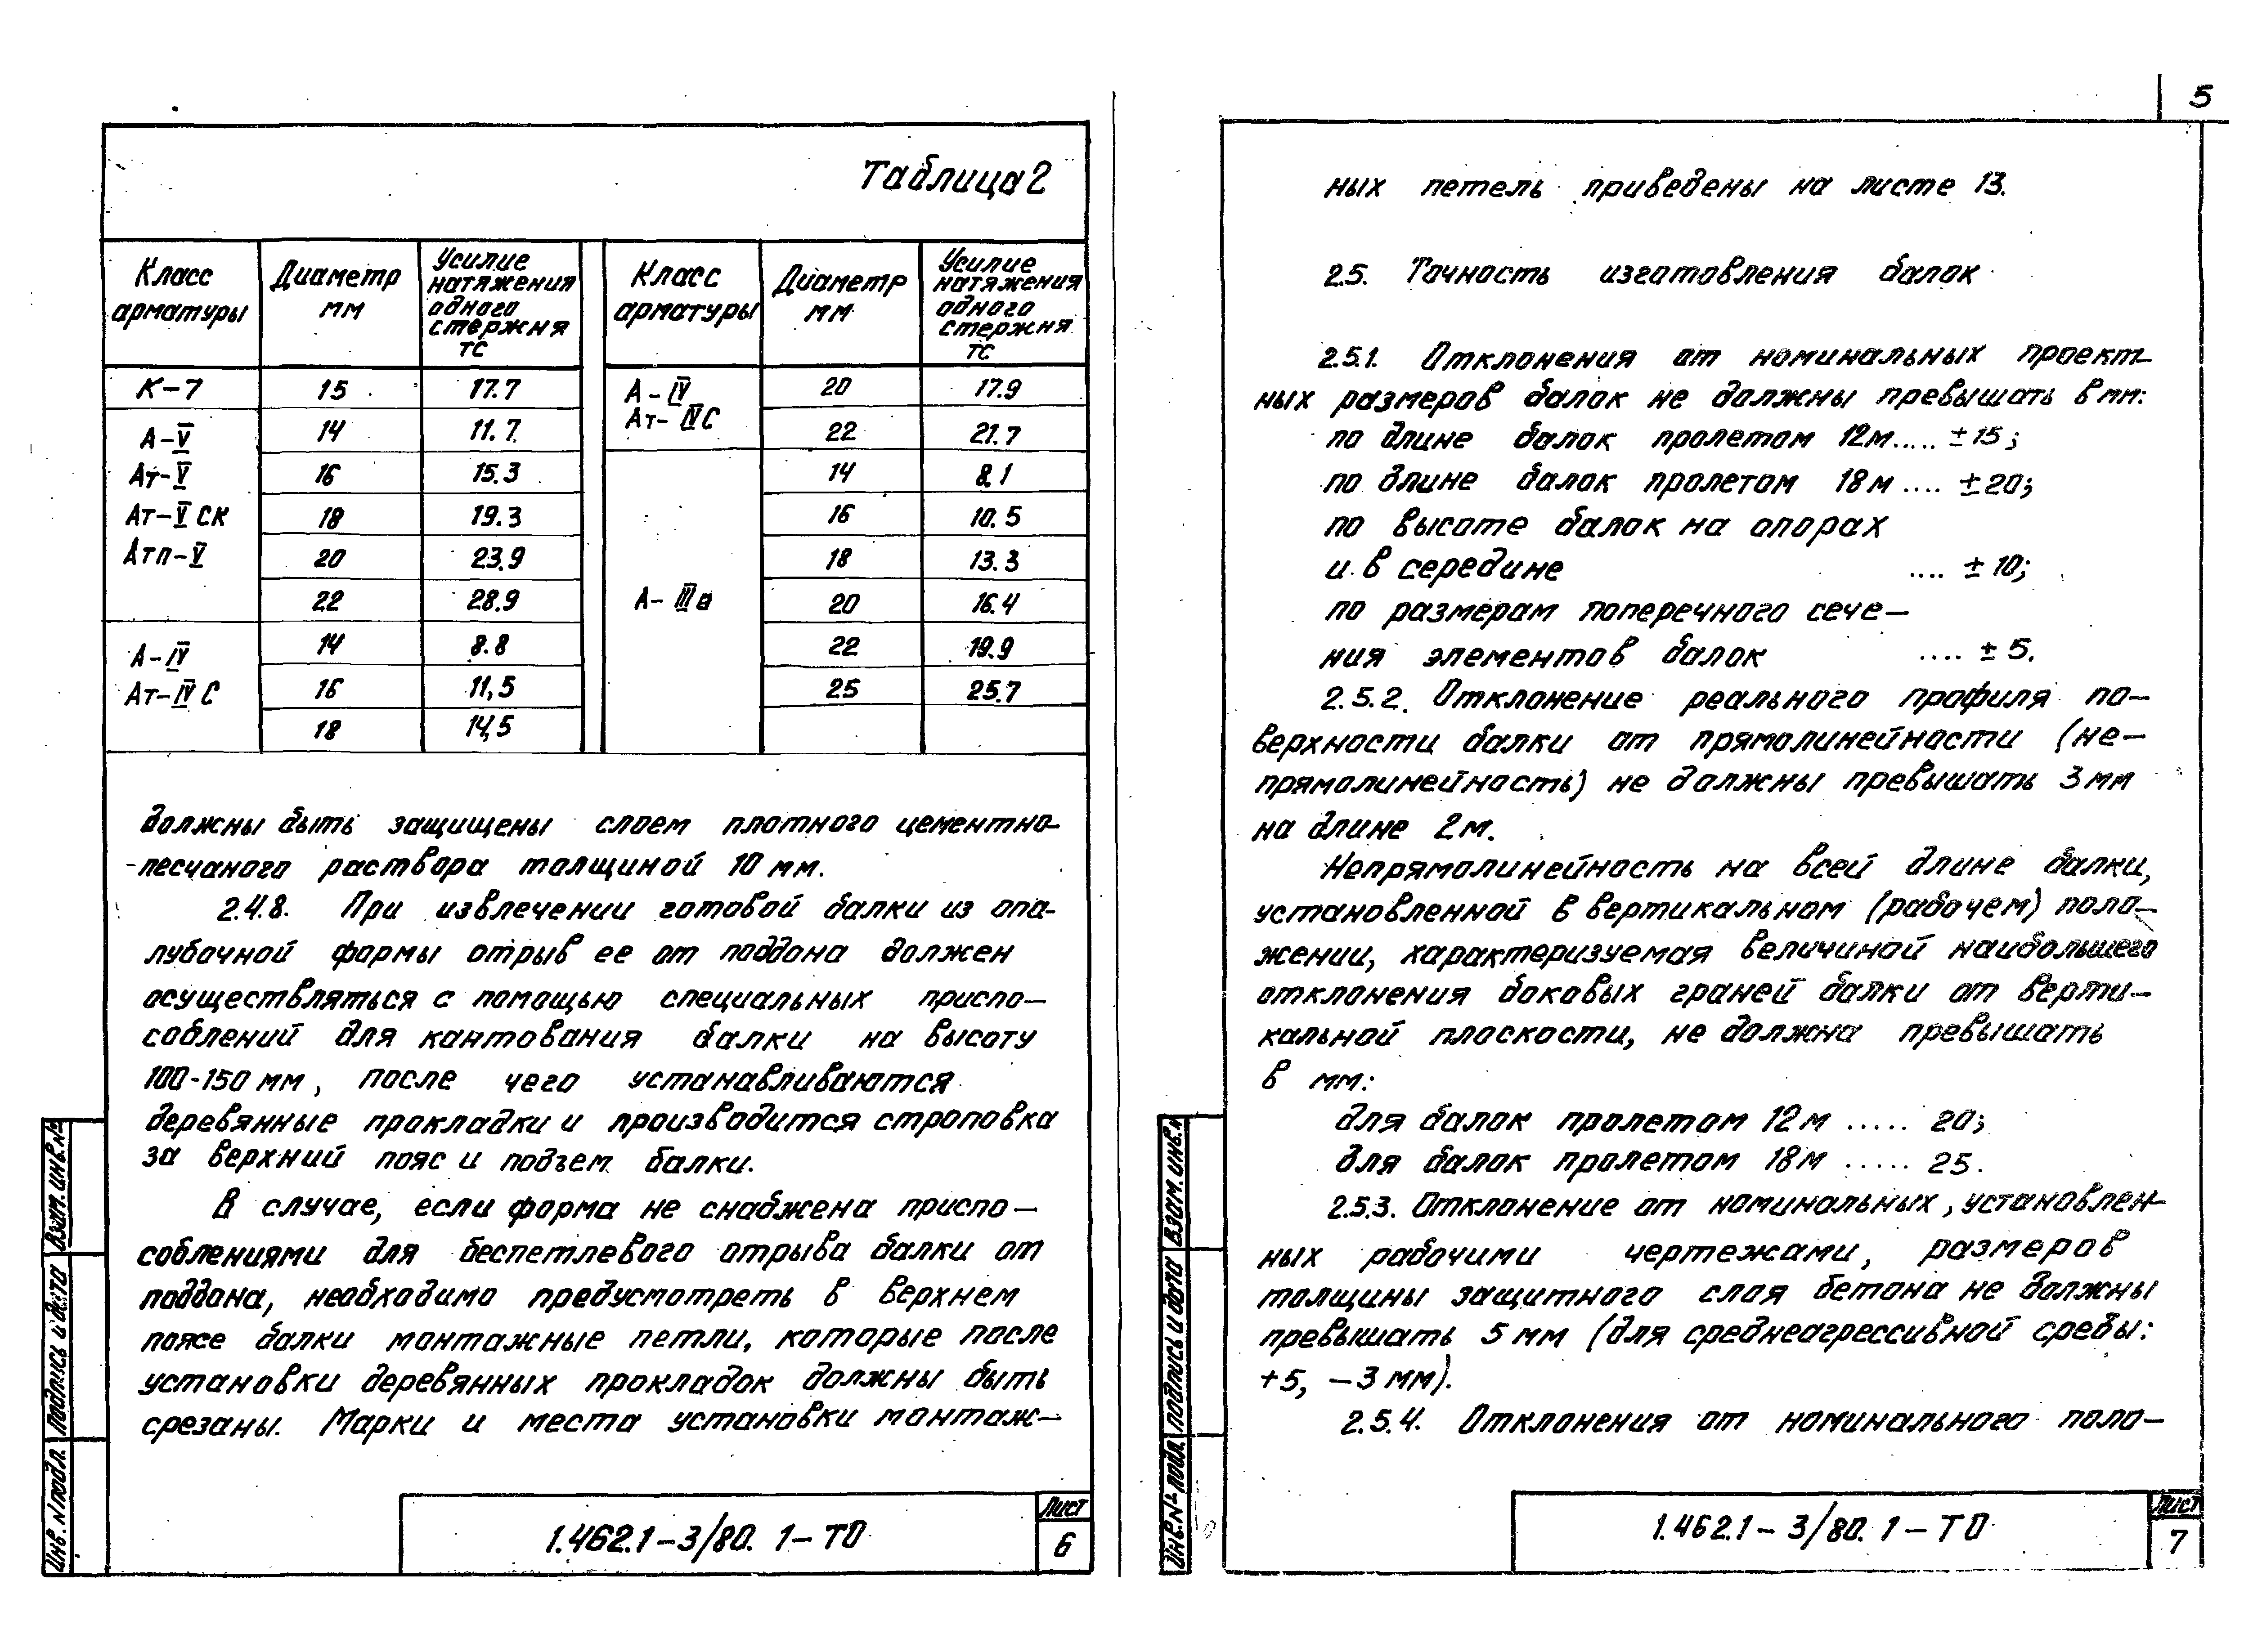 5
Таблица 2
Класс арматуры | Диаметр мм | Усилие натяжения одного стержня тс | Класс арматуры | Диаметр мм | Усилие натяжения одного стержня тс
К-7 | 15 | 17.7 | А-IV | 20 | 17.9
А-V | 14 | 11.7 | Ат-IVС | 22 | 21.7
Ат-V | 16 | 15.3 | 14 | 8.1
Ат-V СК | 18 | 19.3 | 16 | 10.5
Атп-V | 20 | 23.9 | 18 | 13.3
22 | 28.9 | А-IIIв | 20 | 16.4
А-IV | 14 | 8.8 | 22 | 19.9
Ат-IV С | 16 | 11,5 | 25 | 25.7
18 | 14,5
должны быть защищены слоем плотного цементно-
-песчаного раствора толщиной 10 мм.
2.4.8. При извлечении готовой балки из опа-
лубочной формы отрыв ее от поддона должен
осуществляться с помощью специальных приспо-
соблений для кантования балки на высоту
100-150 мм, после чего устанавливаются
деревянные прокладки и производится строповка
за верхний пояс и подъем балки.
В случае, если форма не снабжена приспо-
соблениями для беспетлевого отрыва балки от
поддона, необходимо предусмотреть в верхнем
поясе балки монтажные петли, которые после
установки деревянных прокладок должны быть
срезаны. Марки и места установки монтаж-
Инв. N подл. Подпись и дата Взам. инв. №
1.462.1-3/80. 1-ТО
Лист
6
ных петель приведены на листе 13.
2.5. Точность изготовления балок
2.5.1. Отклонения от номинальных проект-
ных размеров балок не должны превышать в мм:
по длине балок пролетом 12м..... ±15;
по длине балок пролетом 18м .... ±20;
по высоте балок на опорах
и в середине .... ±10;
по размерам поперечного сече-
ния элементов балок .... ±5.
2.5.2. Отклонение реального профиля по-
верхности балки от прямолинейности (не-
прямолинейность) не должны превышать 3 мм
на длине 2м.
Непрямолинейность на всей длине балки,
установленной в вертикальном (рабочем) поло-
жении, характеризуемая величиной наибольшего
отклонения боковых граней балки от верти-
кальной плоскости, не должна превышать
в мм:
для балок пролетом 12м ..... 20;
для балок пролетом 18м ..... 25.
2.5.3. Отклонение от номинальных, установлен-
ных рабочими чертежами, размеров
толщины защитного слоя бетона не должны
превышать 5 мм (для среднеагрессивной среды:
+5, -3 мм).
2.5.4. Отклонения от номинального поло-
Инв. № подл. Подпись и дата Взам. инв. N
1.462.1-3/80. 1-ТО
Лист
7